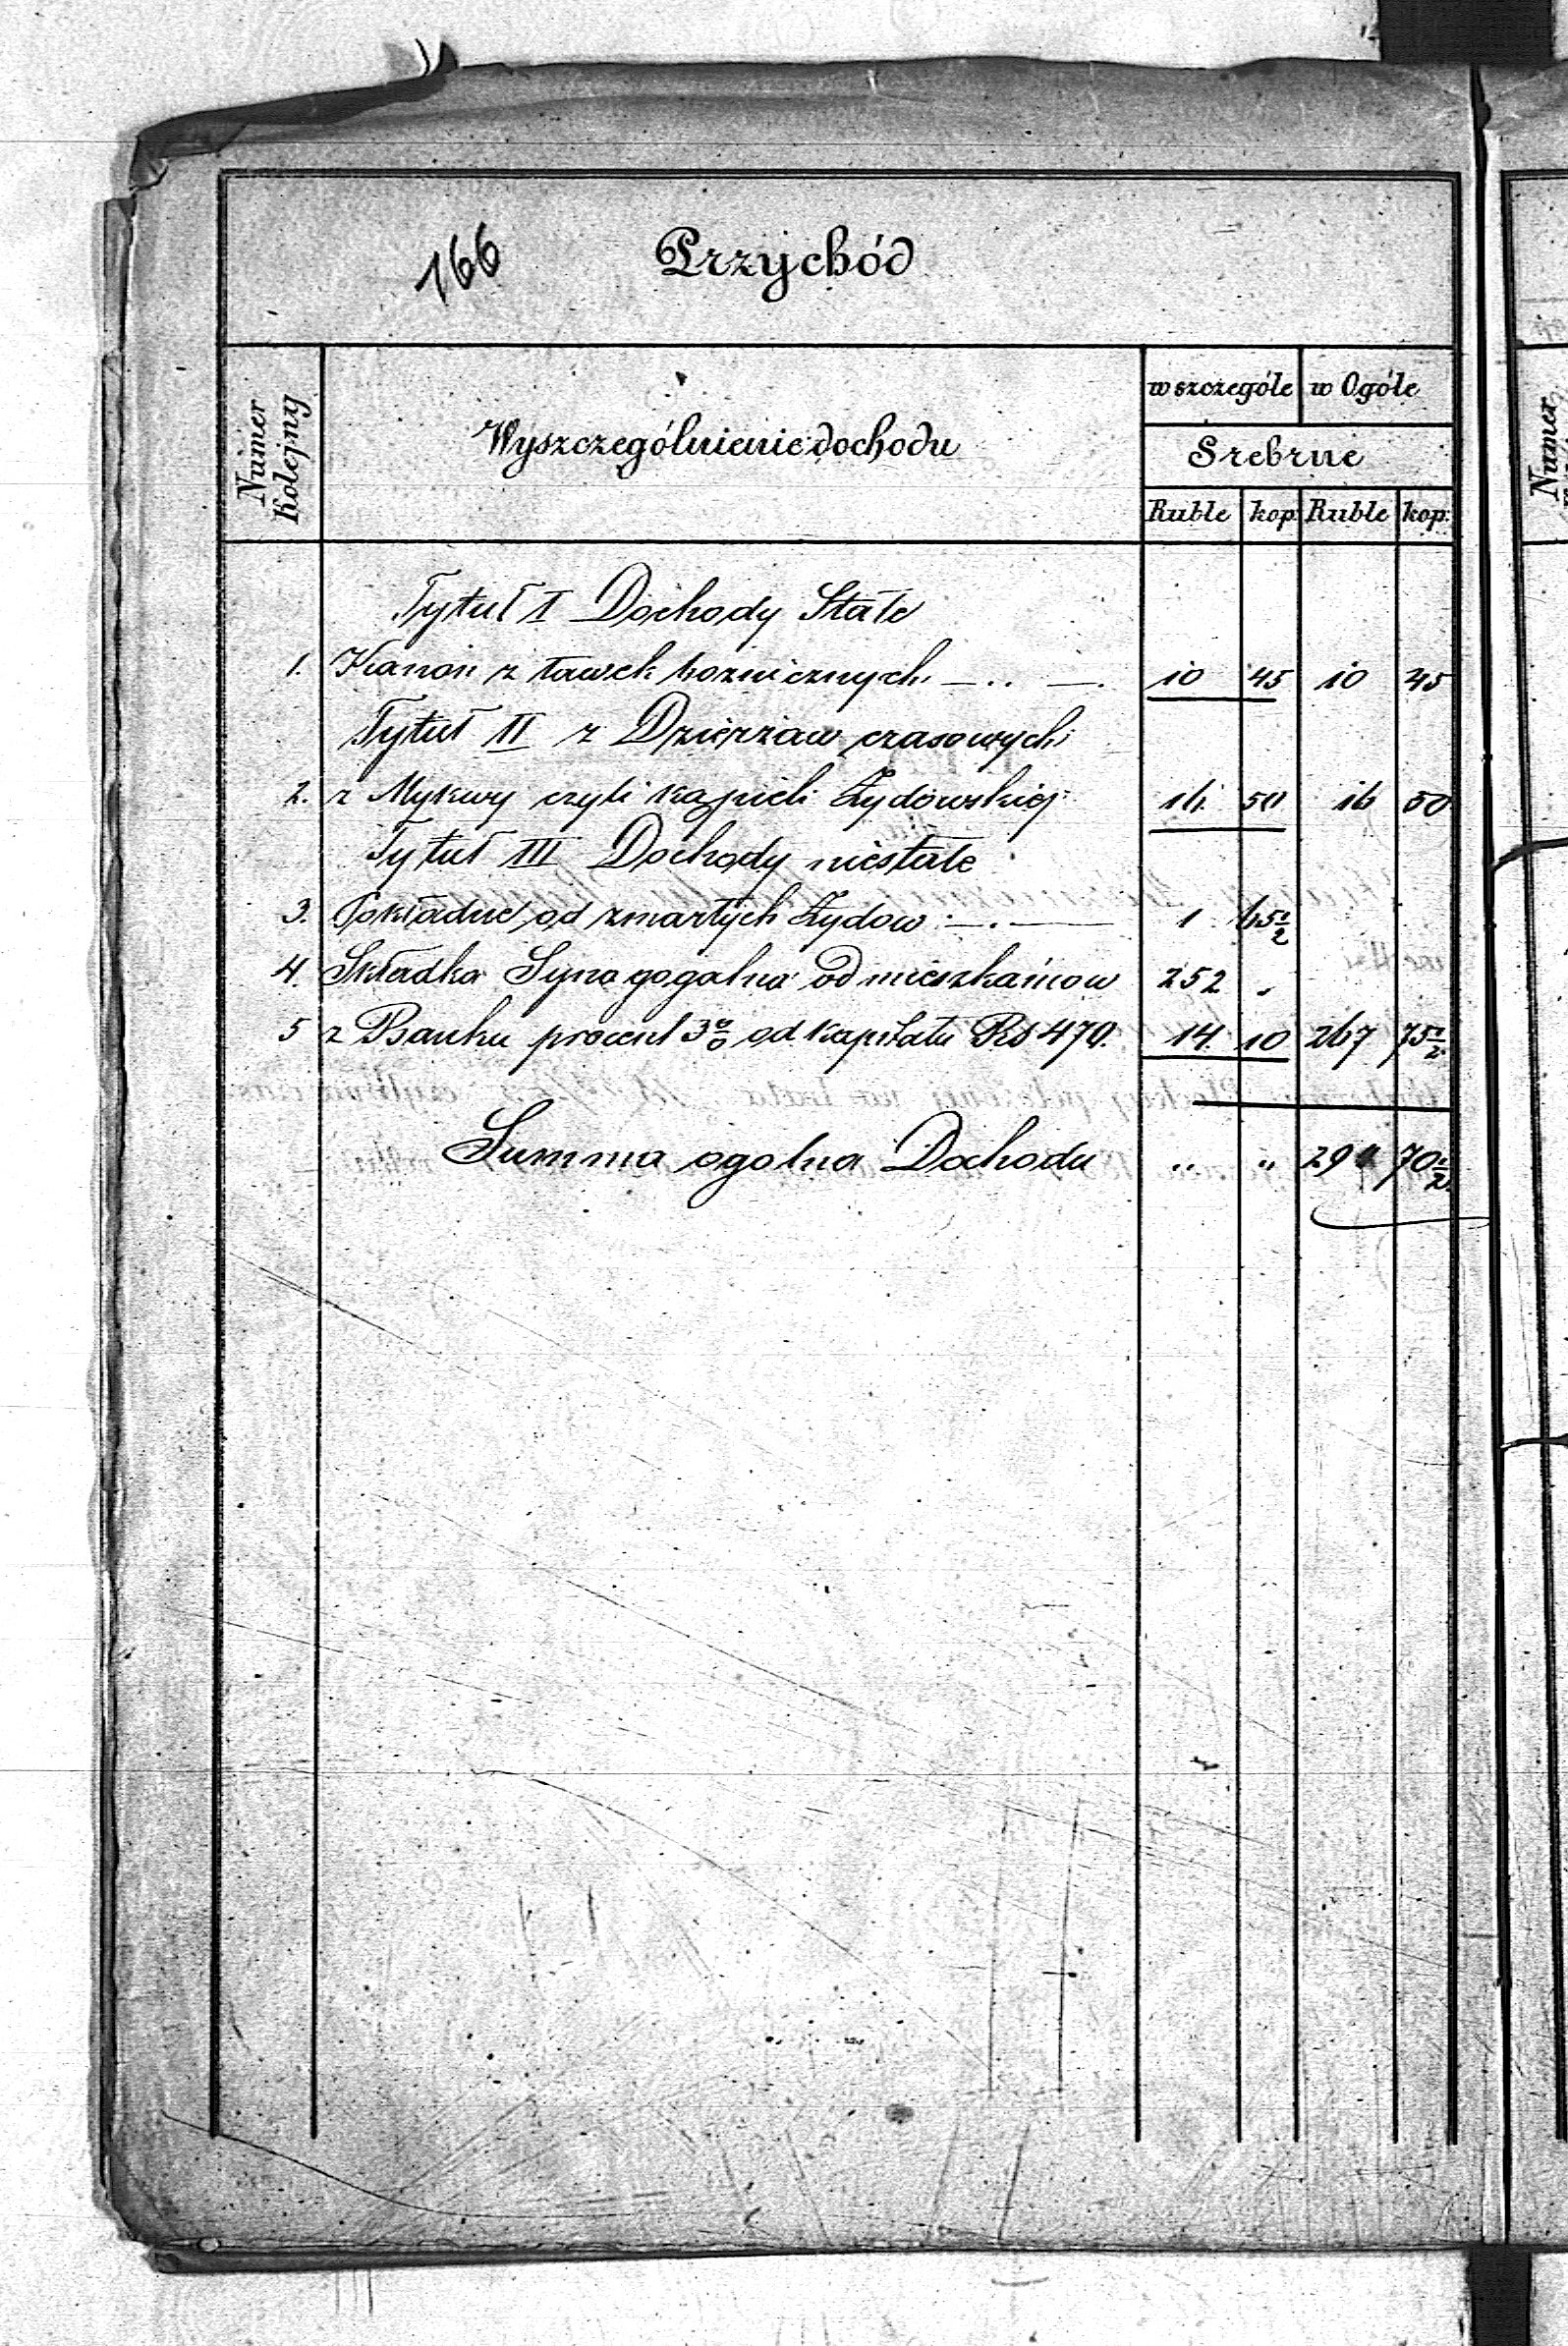 166 Przychód
Numer Kolejny
Wyszczególnienie dochodu
w szczególe w Ogóle
Srebrne
Ruble kop. Ruble kop.
Tytuł I Dochody Stałe
1. Kanon z ławek boznicznych 10 45 10 45
Tytuł II z Dzierżaw czasowych
2. z Mykwy czyli kąpieli Żydowskiej 16 50 16 50
Tytuł III Dochody niestałe
3. Pokładne od zmarłych Żydow 1 65½
4. Składka Synagogalna od mieszkańcow 252 "
5 z Banku procent 3% od kapitału Rs 470. 14. 10 267 75½
Summa ogolna Dochodu " " 294 70½
Numer